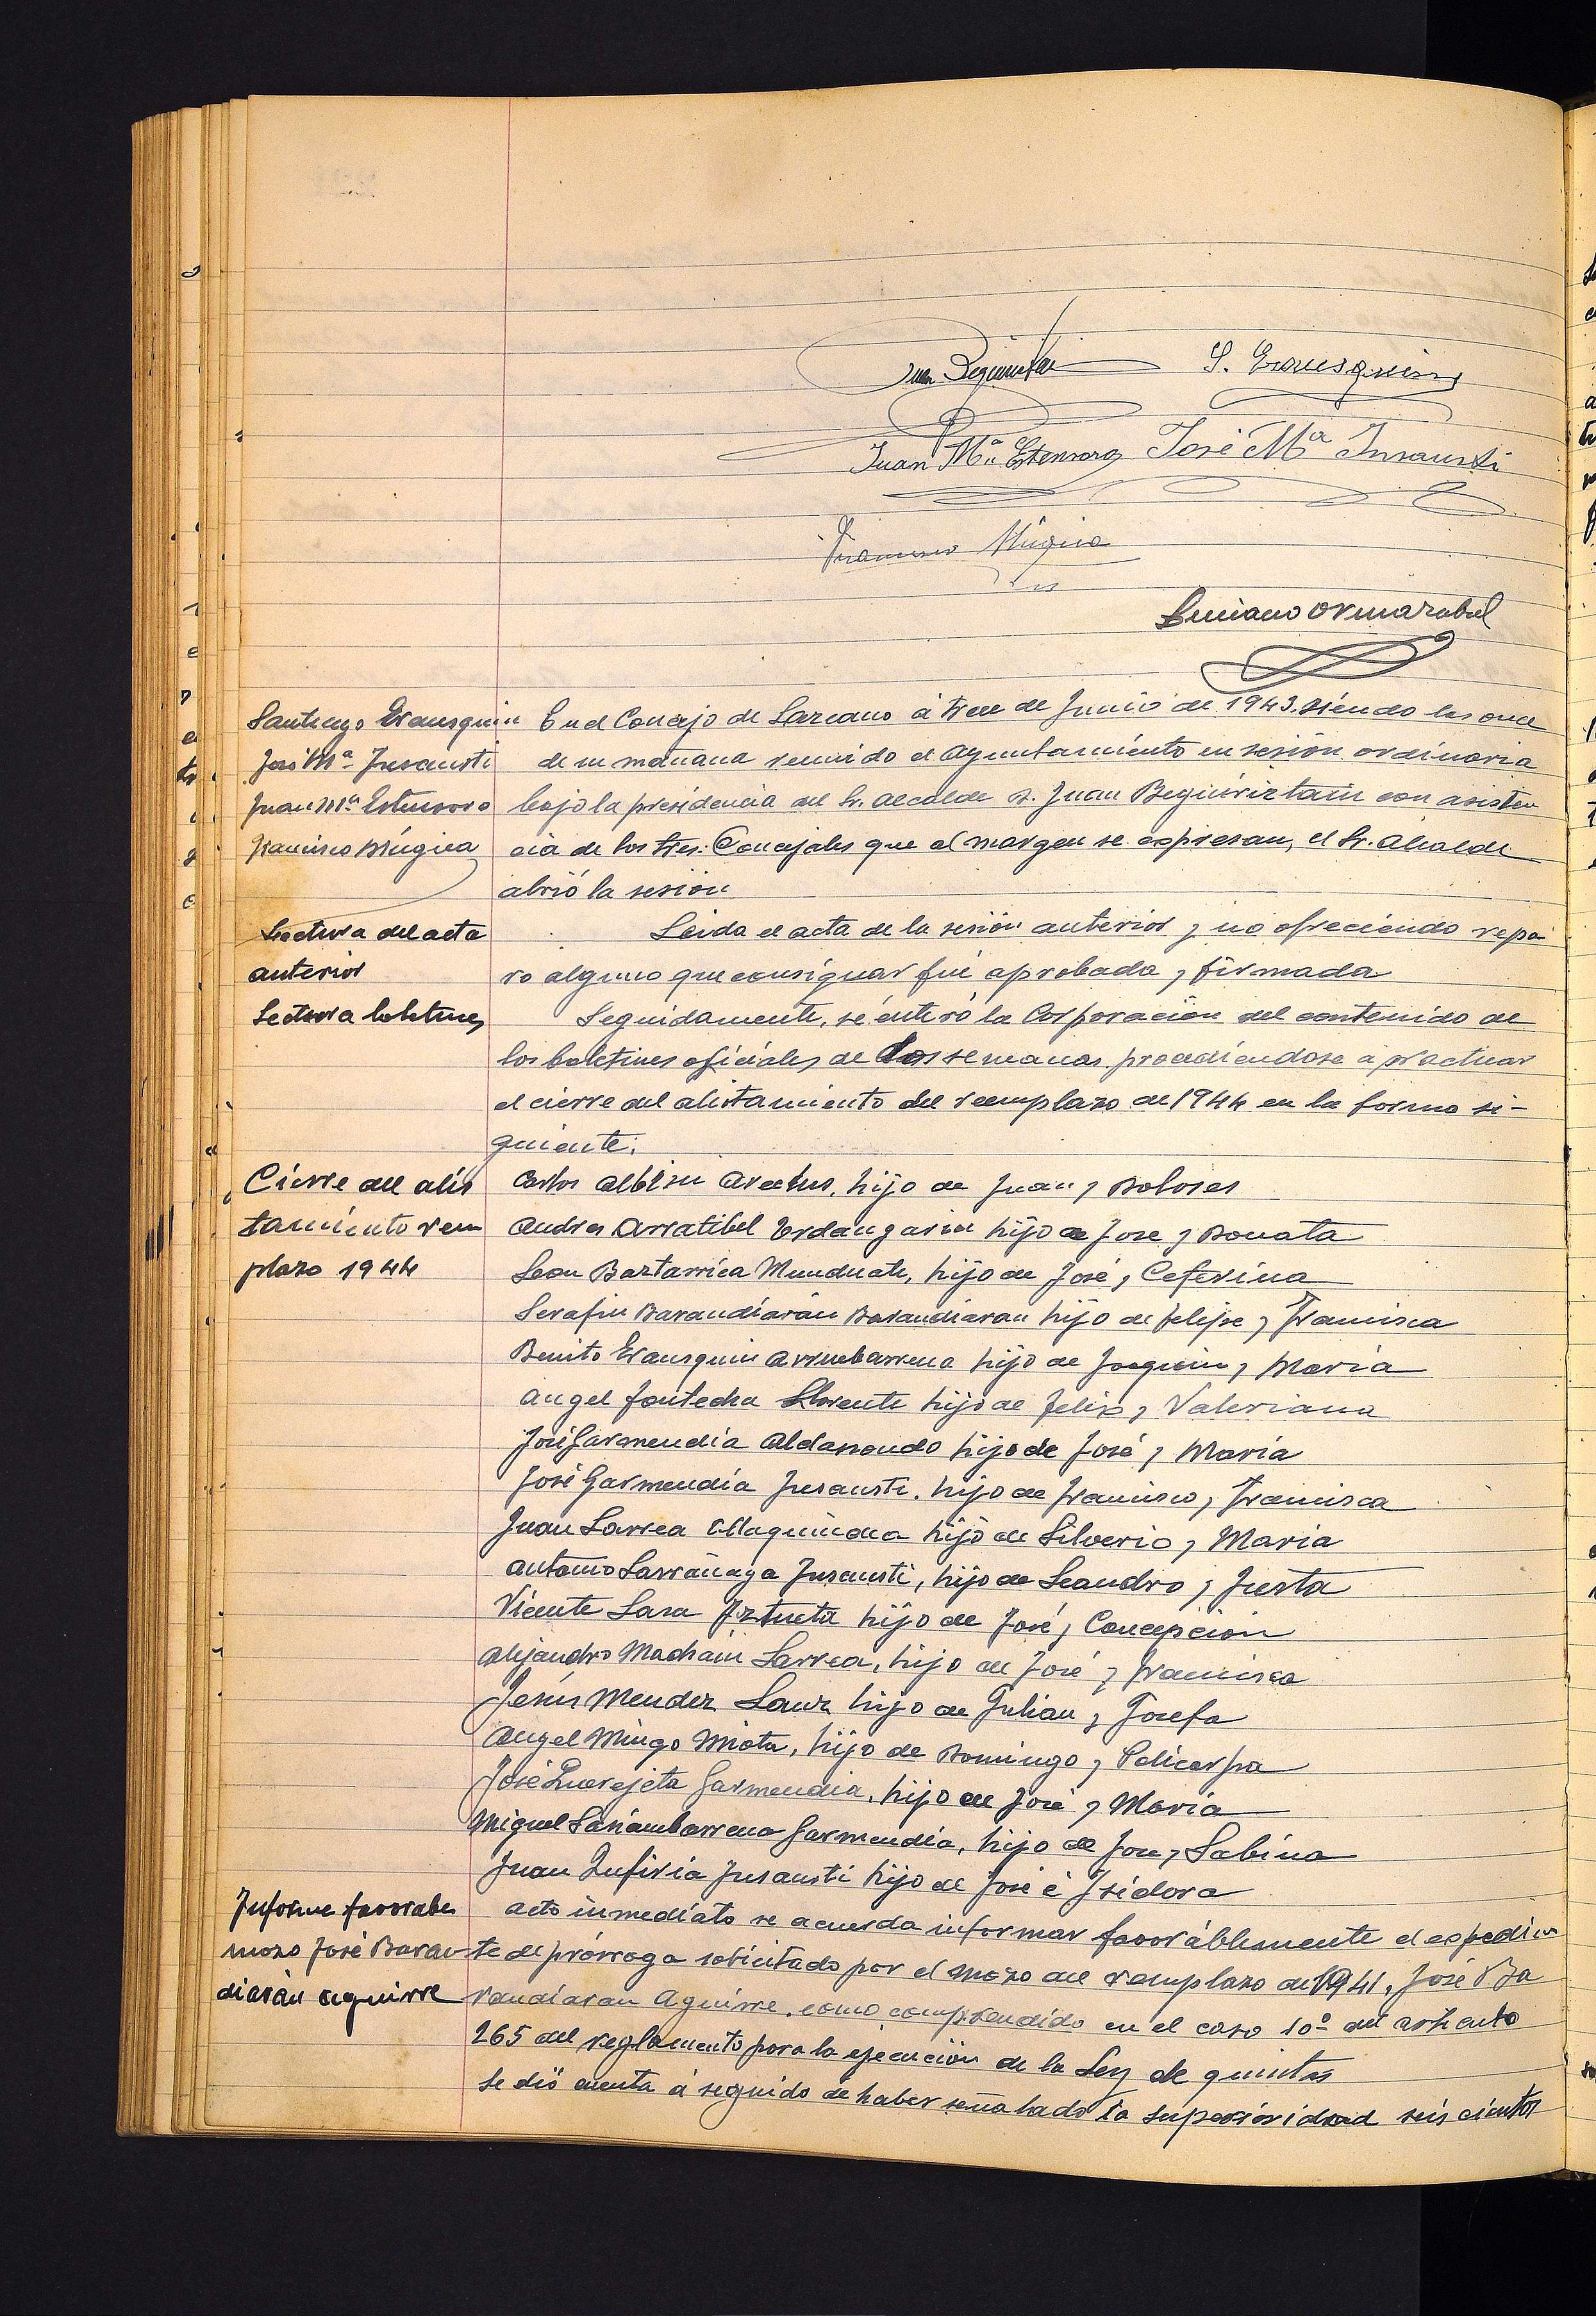 Juan Beguiristain S. Erausquin
Juan Mª Estensoro José Mª Insausti
Francisco Múgica
Luciano Ormazabal
Santiago Erausquin
José Mª Insausti
Juan Mª Estensoro
Francisco Múgica
En el Concejo de Lazcano á trece de Junio de 1943. siendo las once
de su mañana reunido el Ayuntamiento en sesión ordinaria
bajo la presidencia del Sr. alcalde D. Juan Beguiristain con asisten
cia de los tres: Concejales que al margen se expresan, el Sr. Alcalde
abrió la sesión
Lectura del acta
anterior
Leida el acta de la sesión anterior y no ofreciendo repa
ro alguno que consignar fué aprobada y firmada
Lectura boletines
Seguidamente, se enteró la Corporación del contenido de
los boletines oficiales de dos semanas. procediendose á practicar
el cierre del alistamiento del reemplazo de 1944 en la forma si-
guiente:
Cierre del alis
tamiento reem
plazo 1944
Carlos Albizu hijo de Juan y Dolores
Andres Arratibel Urdangarin hijo de Jose y Donata
Leon Baztarrica Munduate, hijo de José y Ceferina
Serafin Barandiarán Barandiaran hijo de Felipe y Francisca
Benito Erausquin Arruebarrena hijo de Joaquin y Maria
Angel Fontecha Llorente hijo de Felix y Valeriana
José Garmendia Aldasoro hijo de José y Maria
José Garmendia Insausti. hijo de Francisco y Francisca
Juan Larrea hijo de Silverio y Maria
Antonio Larrañaga Insausti, hijo de Leandro y Justa
Vicente Lasa Iztueta hijo de José y Concepción
Alejandro Machain Larrea, hijo de José y Francisca
Jesús Mendez hijo de Julian y Josefa
Angel Mingo Miota, hijo de Domingo y Policarpa
José Querejeta Garmendia, hijo de José y Maria
Miguel Sarriambarrena Garmendia, hijo de Jose y Sabina
Juan Zufiria Insausti hijo de José é Isidora
Informe favorable
mozo José Baran
diarán Aguirre
acto inmediato se acuerda informar favorablemente el expedien
te de prórroga solicitado por el mozo del reemplazo de 1941, José Ba
randiaran Aguirre, como comprendido en el caso 10º del articulo
265 del reglamento para la ejecución de la Ley de quintas
Se dió cuenta á seguido de haber señalado la superioridad seis cientos